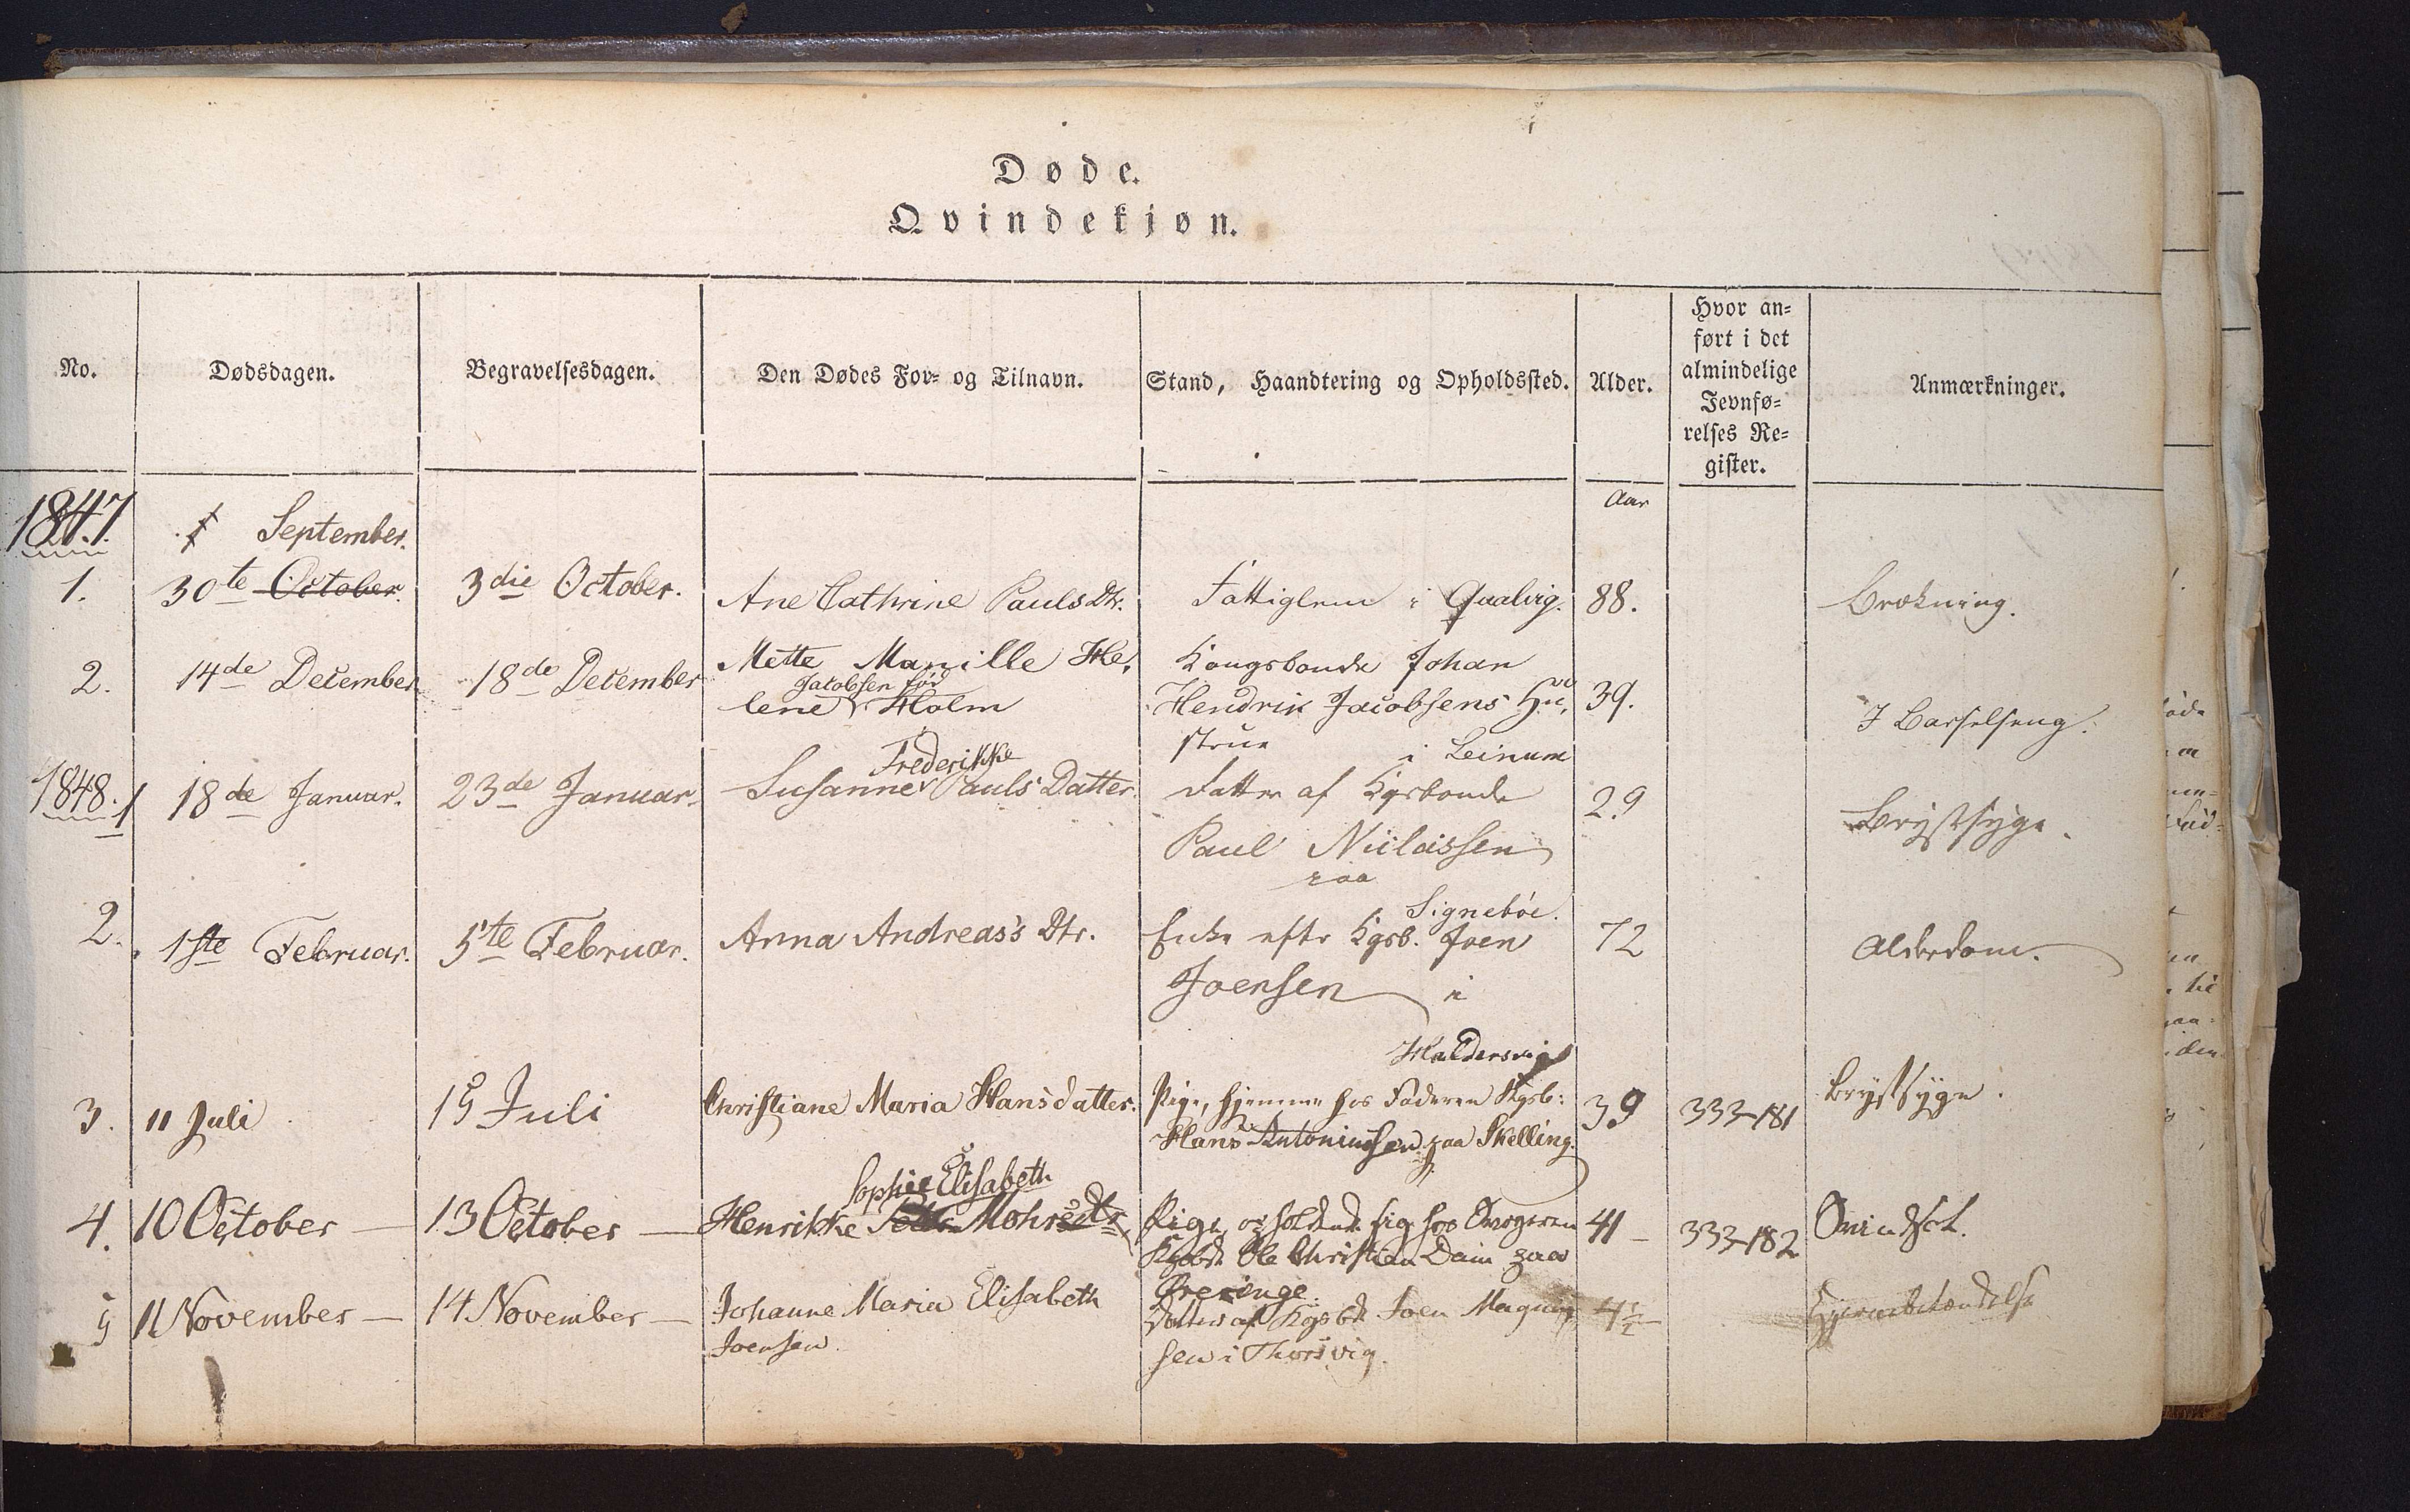 Døde.
Qvindekjøn.
No.
Dødsdagen.
Begravelsesdagen.
Den Dødes For- og Tilnavn.
Stand, Haandtering og Opholdssted.
Alder.
Hvor an-
ført i det
almindelige
Jevnfø-
relses Re-
gister.
Anmærkninger.
Aar
1847.
September.
1.
30te October.
3die October.
Ane Cathrine Pauls Dtr.
Fattiglem i Qvalvig.
88.
Brækning.
2.
14de December
18de December
Mette Marille He,
Jacobsen fød
lene Holm
Kongsbonde Johan
Hendrik Jacobsens Hu,
strue i Leinum
39.
I Barselseng.
1848. 1
18de Januar.
23de Januar.
Frederikke
Susanne Pauls Datter.
Datter af Kgsbonde
Paul Niclassen
paa
Signebøe.
29
Brystsyge.
2.
1ste Februar.
5te Februar.
Anna Andreas's Dtr.
Enke efter Kgsb. Joen
Joensen i
Haldersvig
72
Alderdom.
3.
11 Juli
15 Juli
Christiane Maria Hansdatter.
Pige, hjemme hos Faderen Kgsb:
Hans Antoniussen paa Skelling.
39
333-181
Brystsyge.
4.
10 October —
13 October —
Sophie Elisabeth
Henrikke Mohrs Dtr
Pige, opholdende sig hos Svogeren
Kgsbd. Ole Christian Dam paa
Ørerenge.
41 —
333-182
Svindsot.
5
11 November —
14 November —
Johanne Maria Elisabeth
Joensen.
Datter af Kgsbd. Joen Magnus,
sen i Thorsvig.
4½
Hjernebetændelse